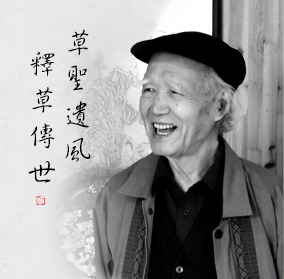 草聖遺風
釋草傳世